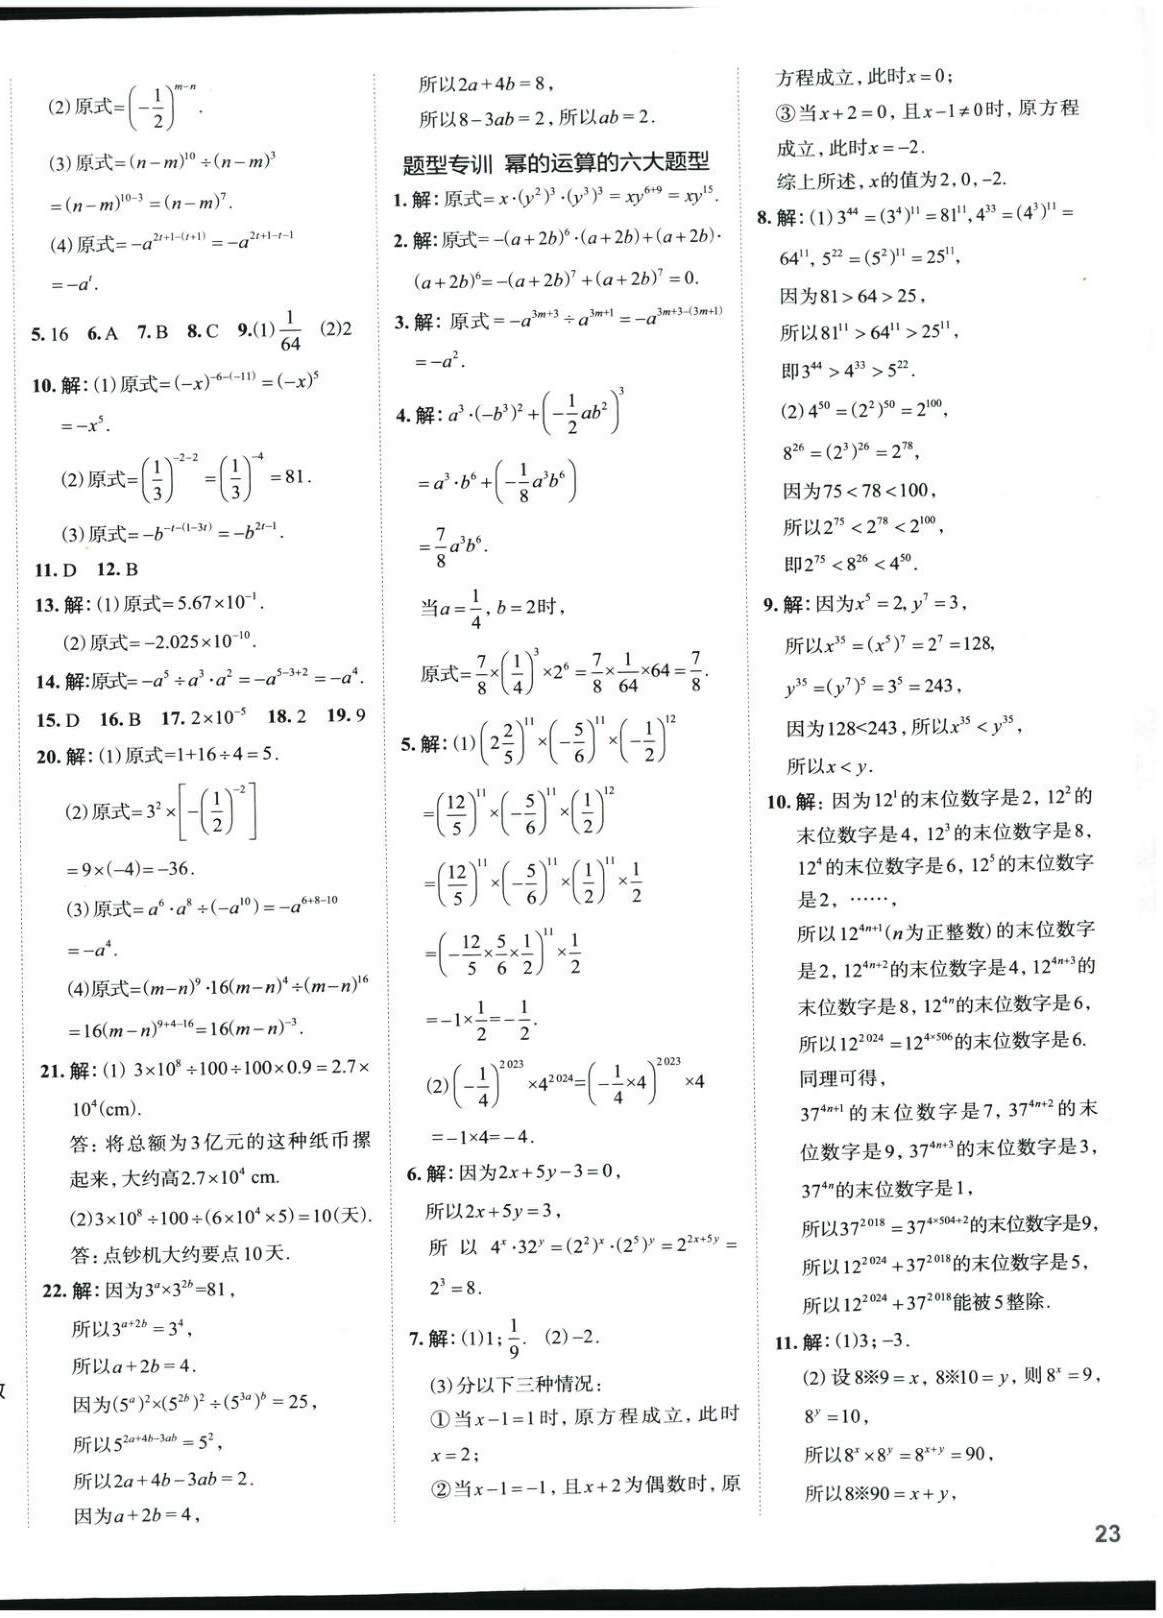 (2)原式=(-1/2)^{m-n}.
(3)原式=(n-m)^{10}÷(n-m)^3
=(n-m)^{10-3}=(n-m)^7.
(4)原式=-a^{2t+1-(t+1)}=-a^{2t+1-t-1}
=-a^t.
5.16 6.A 7.B 8.C 9.(1)1/64 (2)2
10.解:(1)原式=(-x)^{-6-(-11)}=(-x)^5
=-x^5.
(2)原式=(1/3)^{-2-2}=(1/3)^{-4}=81.
(3)原式=-b^{-t-(1-3t)}=-b^{2t-1}.
11.D 12.B
13.解:(1)原式=5.67×10^{-1}.
(2)原式=-2.025×10^{-10}.
14.解:原式=-a^5÷a^3·a^2=-a^{5-3+2}=-a^4.
15.D 16.B 17.2×10^{-5} 18.2 19.9
20.解:(1)原式=1+16÷4=5.
(2)原式=3^2×[-(1/2)^{-2}]
=9×(-4)=-36.
(3)原式=a^6·a^8÷(-a^{10})=-a^{6+8-10}
=-a^4.
(4)原式=(m-n)^9·16(m-n)^4÷(m-n)^{16}
=16(m-n)^{9+4-16}=16(m-n)^{-3}.
21.解:(1) 3×10^8÷100÷100×0.9=2.7×
10^4(cm).
答:将总额为3亿元的这种纸币摞
起来,大约高2.7×10^4 cm.
(2)3×10^8÷100÷(6×10^4×5)=10(天).
答:点钞机大约要点10天.
22.解:因为3^a×3^{2b}=81,
所以3^{a+2b}=3^4,
所以a+2b=4.
因为(5^a)^2×(5^{2b})^2÷(5^{3a})^b=25,
所以5^{2a+4b-3ab}=5^2,
所以2a+4b-3ab=2.
因为a+2b=4,
所以2a+4b=8,
所以8-3ab=2,所以ab=2.
题型专训 幂的运算的六大题型
1.解:原式=x·(y^2)^3·(y^3)^3=xy^{6+9}=xy^{15}.
2.解:原式=-(a+2b)^6·(a+2b)+(a+2b)·
(a+2b)^6=-(a+2b)^7+(a+2b)^7=0.
3.解:原式=-a^{3m+3}÷a^{3m+1}=-a^{3m+3-(3m+1)}
=-a^2.
4.解:a^3·(-b^3)^2+(-1/2ab^2)^3
=a^3·b^6+(-1/8a^3b^6)
=7/8a^3b^6.
当a=1/4,b=2时,
原式=7/8×(1/4)^3×2^6=7/8×1/64×64=7/8.
5.解:(1)(2 2/5)^{11}×(-5/6)^{11}×(-1/2)^{12}
=(12/5)^{11}×(-5/6)^{11}×(1/2)^{12}
=(12/5)^{11}×(-5/6)^{11}×(1/2)^{11}×1/2
=(-12/5×5/6×1/2)^{11}×1/2
=-1×1/2=-1/2.
(2)(-1/4)^{2 023}×4^{2 024}=(-1/4×4)^{2 023}×4
=-1×4=-4.
6.解:因为2x+5y-3=0,
所以2x+5y=3,
所以 4^x·32^y=(2^2)^x·(2^5)^y=2^{2x+5y}=
2^3=8.
7.解:(1)1;1/9. (2)-2.
(3)分以下三种情况:
①当x-1=1时,原方程成立,此时
x=2;
②当x-1=-1,且x+2为偶数时,原
方程成立,此时x=0;
③当x+2=0,且x-1≠0时,原方程
成立,此时x=-2.
综上所述,x的值为2,0,-2.
8.解:(1)3^{44}=(3^4)^{11}=81^{11},4^{33}=(4^3)^{11}=
64^{11},5^{22}=(5^2)^{11}=25^{11},
因为81>64>25,
所以81^{11}>64^{11}>25^{11},
即3^{44}>4^{33}>5^{22}.
(2)4^{50}=(2^2)^{50}=2^{100},
8^{26}=(2^3)^{26}=2^{78},
因为75<78<100,
所以2^{75}<2^{78}<2^{100},
即2^{75}<8^{26}<4^{50}.
9.解:因为x^5=2,y^7=3,
所以x^{35}=(x^5)^7=2^7=128,
y^{35}=(y^7)^5=3^5=243,
因为128<243,所以x^{35}<y^{35},
所以x<y.
10.解:因为12^1的末位数字是2,12^2的
末位数字是4,12^3的末位数字是8,
12^4的末位数字是6,12^5的末位数字
是2,……,
所以12^{4n+1}(n为正整数)的末位数字
是2,12^{4n+2}的末位数字是4,12^{4n+3}的
末位数字是8,12^{4n}的末位数字是6,
所以12^{2 024}=12^{4×506}的末位数字是6.
同理可得,
37^{4n+1}的末位数字是7,37^{4n+2}的末
位数字是9,37^{4n+3}的末位数字是3,
37^{4n}的末位数字是1,
所以37^{2 018}=37^{4×504+2}的末位数字是9,
所以12^{2 024}+37^{2 018}的末位数字是5,
所以12^{2 024}+37^{2 018}能被5整除.
11.解:(1)3;-3.
(2)设8※9=x,8※10=y,则8^x=9,
8^y=10,
所以8^x×8^y=8^{x+y}=90,
所以8※90=x+y,
23